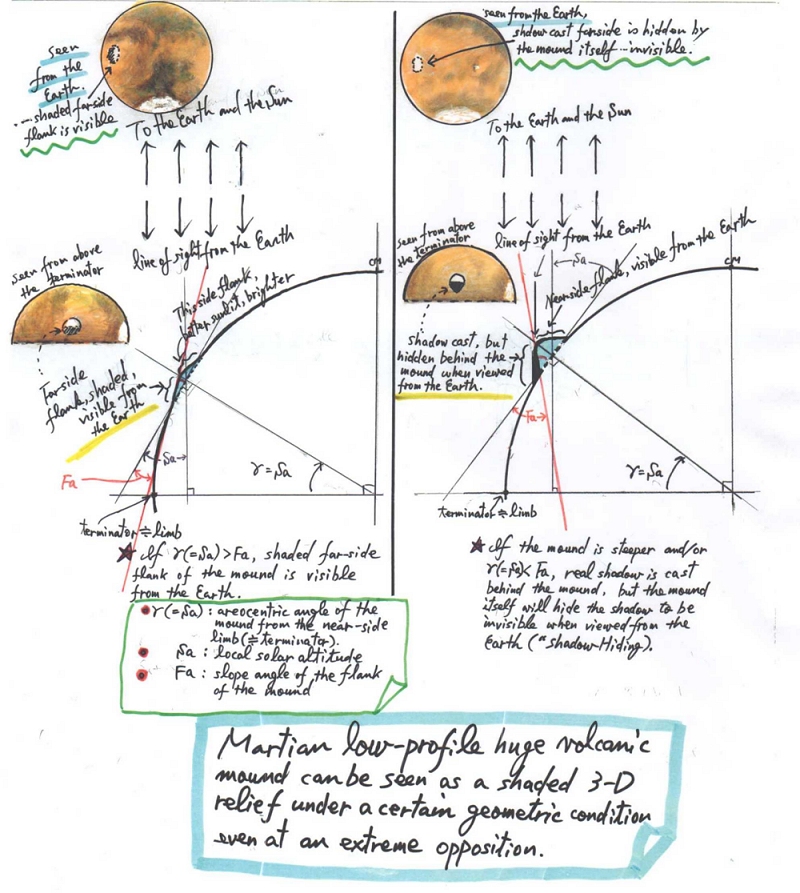 seen
from the
Earth.
shaded far-side
flank is visible
To the Earth and the Sun
line of sight from the Earth
seen from above
the terminator
This side flank,
better sunlit, brighter
CM
Far side
flank, shaded,
visible from
the Earth
Sa
Fa
γ=Sa
terminator≒limb
★ If γ(=Sa)>Fa, shaded far-side
flank of the mound is visible
from the Earth.
γ(=Sa): areocentric angle of the
mound from the near-side
limb(≒terminator).
Sa : local solar altitude
Fa : slope angle of the flank
of the mound
seen from the Earth,
shdow cast farside is hidden by
the mound itself...invisible.
To the Earth and the Sun
line of sight from the Earth
seen from above
the terminator
Sa
Nearside flank, visible from the Earth
CM
shadow cast, but
hidden behind the
mound when viewed
from the Earth.
Fa
γ=Sa
terminator≒limb
★ If the mound is steeper and/or
γ(=Sa)< Fa, real shadow is cast
behind the mound, but the mound
itself will hide the shadow to be
invisible when viewed from the
Earth ("Shadow-Hiding).
Martian low-profile huge volcanic
mound can be seen as a shaded 3-D
relief under a certain geometric condition
even at an extreme opposition.